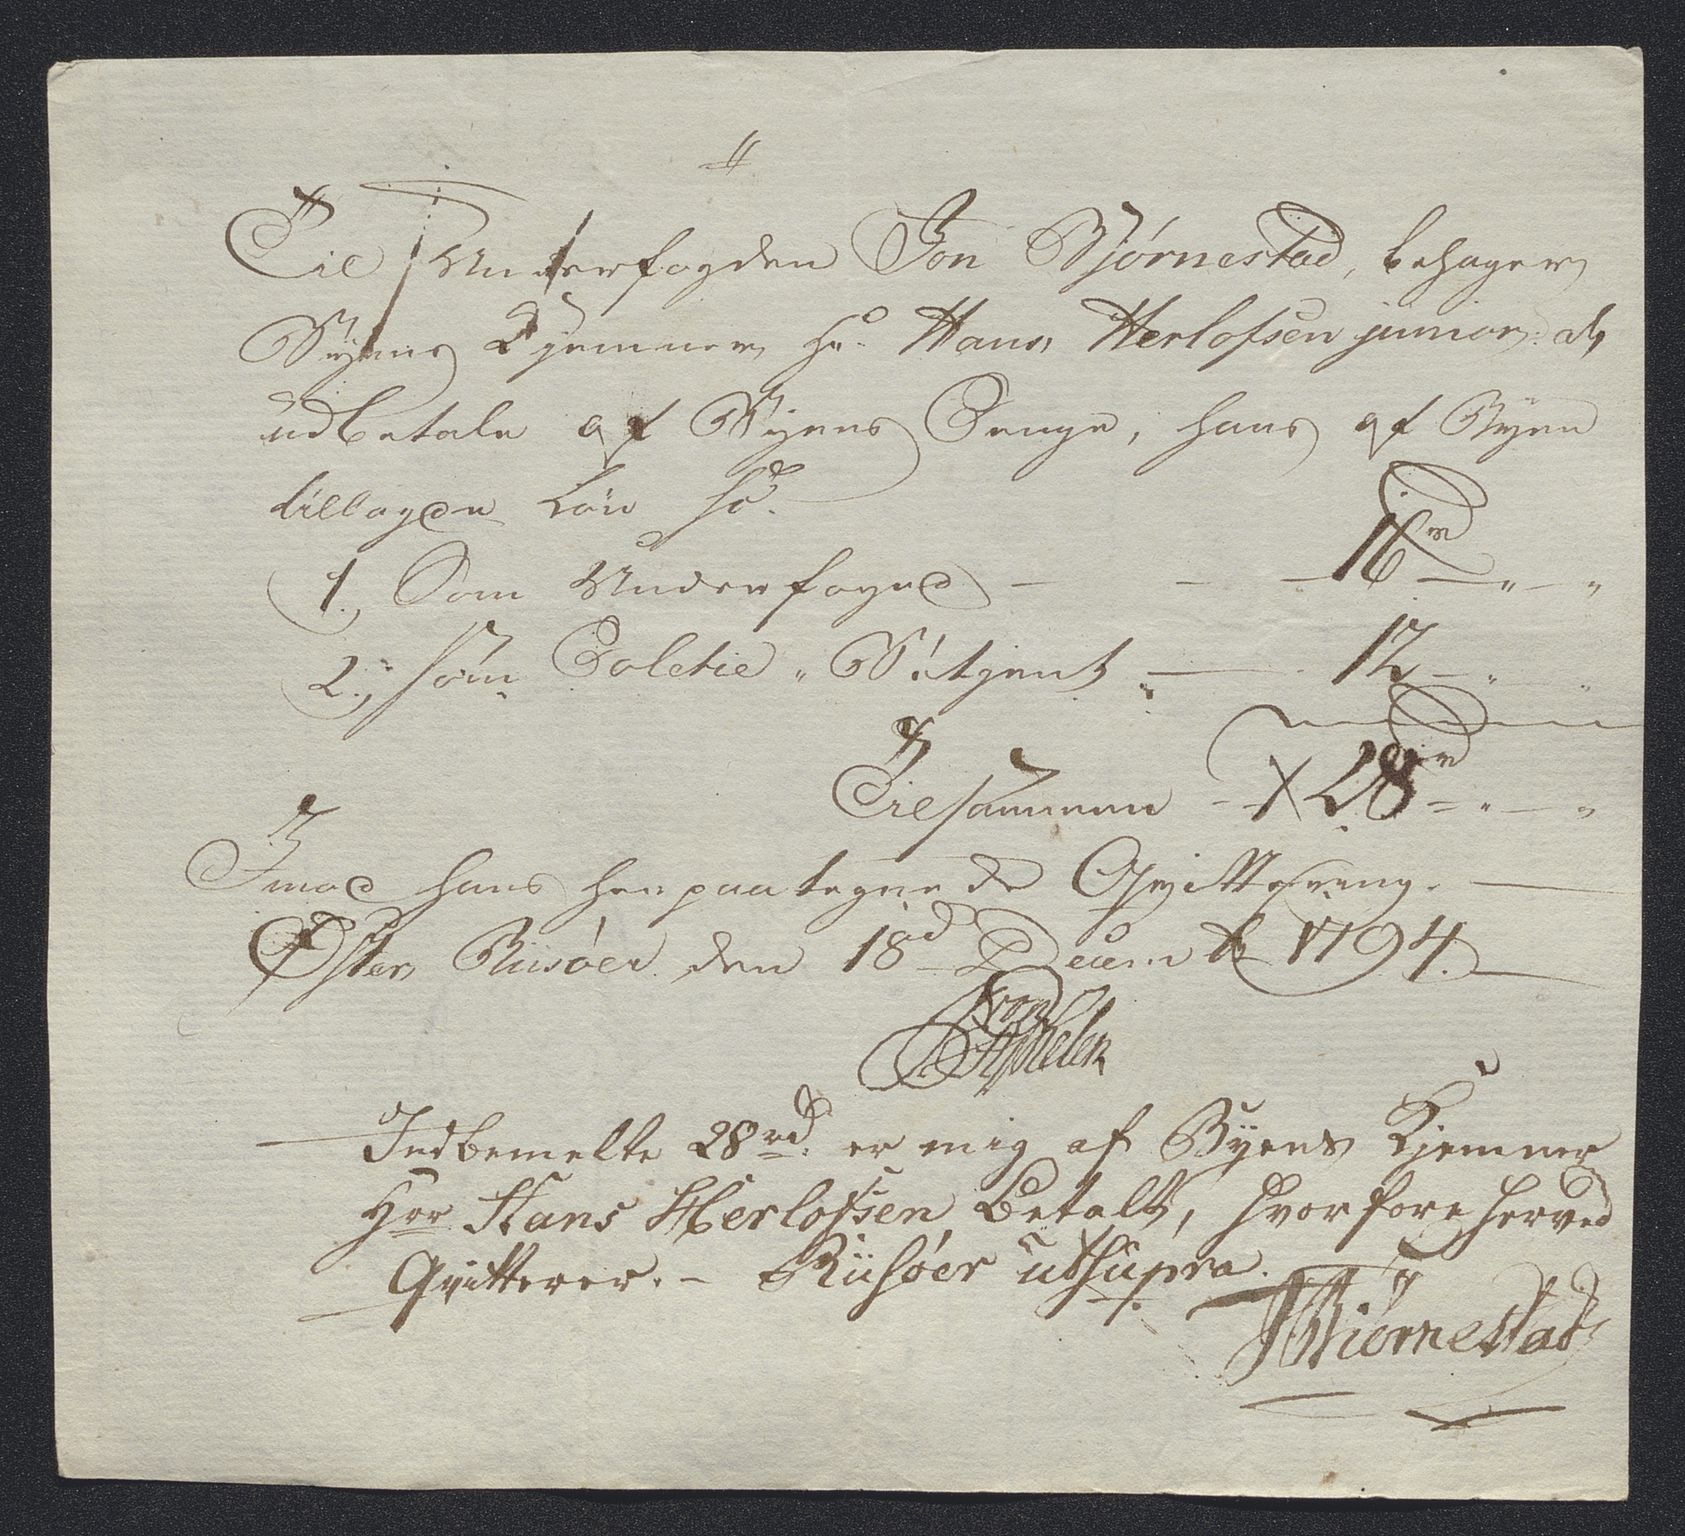 Til Underfogden Jon Bjørnestad, behager
Byens Kjemner Hr. Hans Herlofsen junior at
udbetale af Byens Penge, hans af Byen
tillagde Løn so.
1., Som Underfoged — — 16 rd — " — "
2., som Poletie-Betjent — 12 — "
Tilsammen — 28 rd — " — "
Imod hans her paategnede Qvittering. —
Øster Riisøer den 18d Decembr 1794.
Indbemelte 28 rd. er mig af Byens Kjemner
Hrr Hans Herlofsen Betalt, hvorfore herved
Qvitterer. — Riisøer ut supra.
JBiørnestad